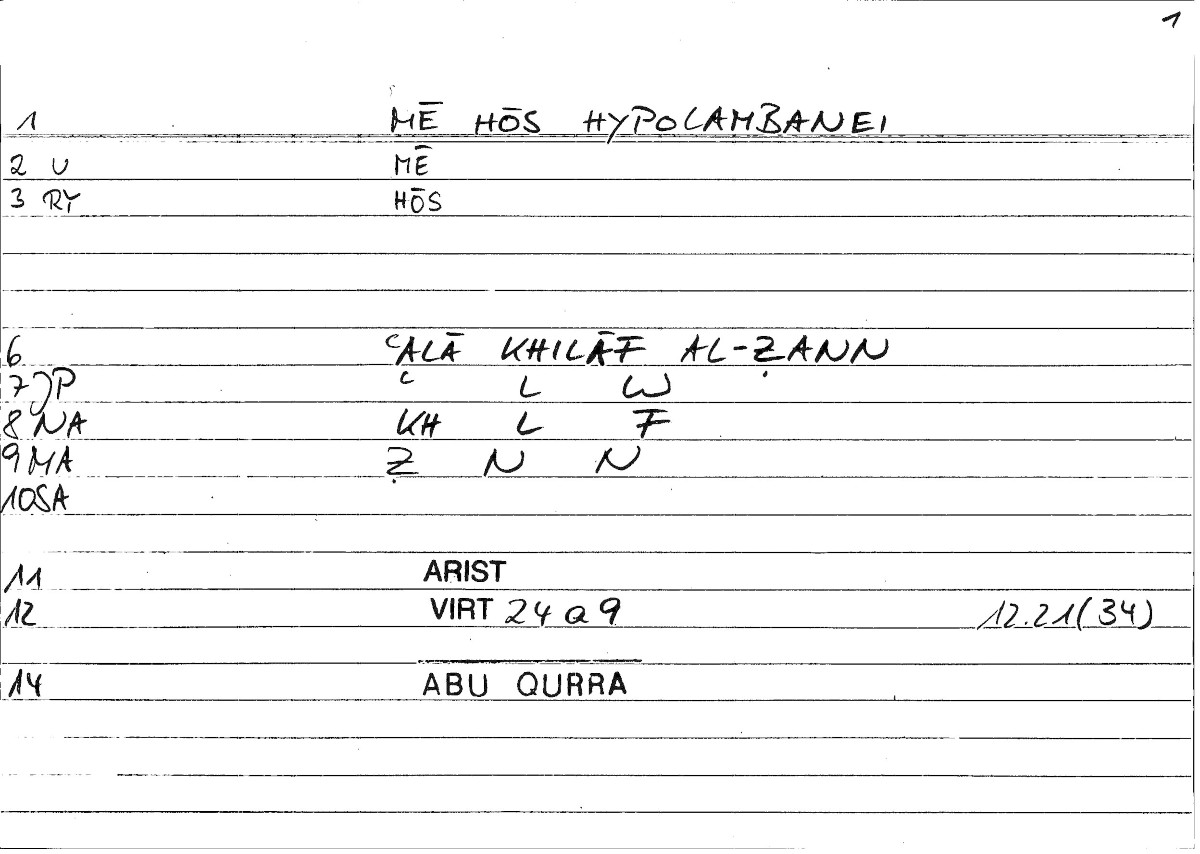 1
1 MĒ HŌS HYPOLAMBANEI
2 U MĒ
3 RY HŌS
6 ʿALĀ KHILĀF AL-ẒANN
7 JP ʿ L W
8 NA KH L F
9 MA Ẓ N N
10 SA
11 ARIST
12 VIRT 24 a 9 12.21(34)
14 ABU QURRA